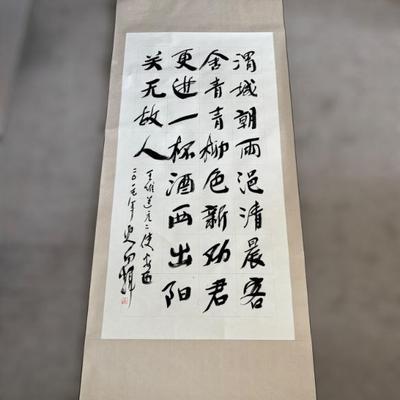 渭城朝雨浥清晨客
舍青青柳色新劝君
更進一杯酒西出阳
关无故人
王维送元二使安西
二〇一年